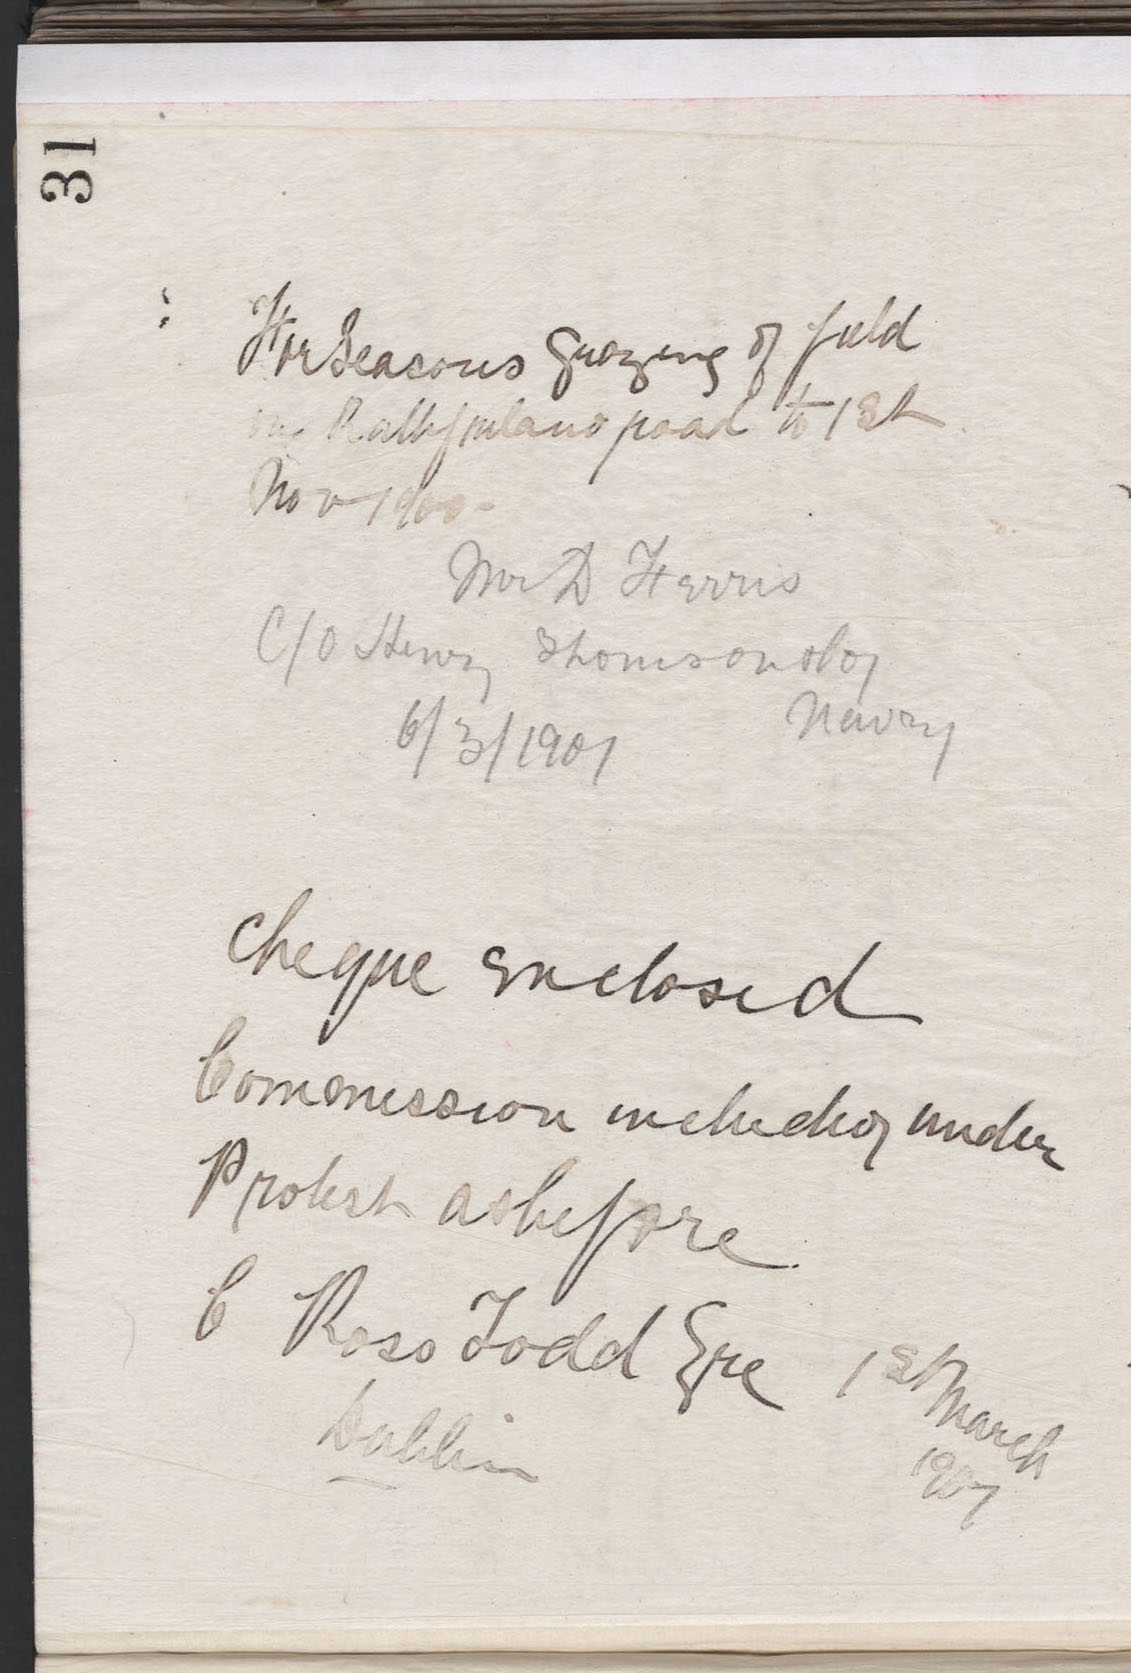 31
For Seasons Grazing of field
on Rathfriland road to 1st
Nov 1900-
Mr D Ferris
C/O Henry Thomson & Coy
Newry
6/3/1901
Cheque Enclosed
Commission including under
Protest as before
C Ross Todd Esqre
1st March
1901
Dublin